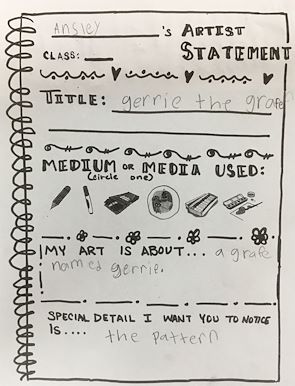 Ansley 's ARTIST
CLASS: STATEMENT
TITLE: gerrie the grafe
MEDIUM OR MEDIA USED:
(circle one)
MY ART IS ABOUT... a grafe
named gerrie.
SPECIAL DETAIL I WANT YOU TO NOTICE
IS.... the pattern